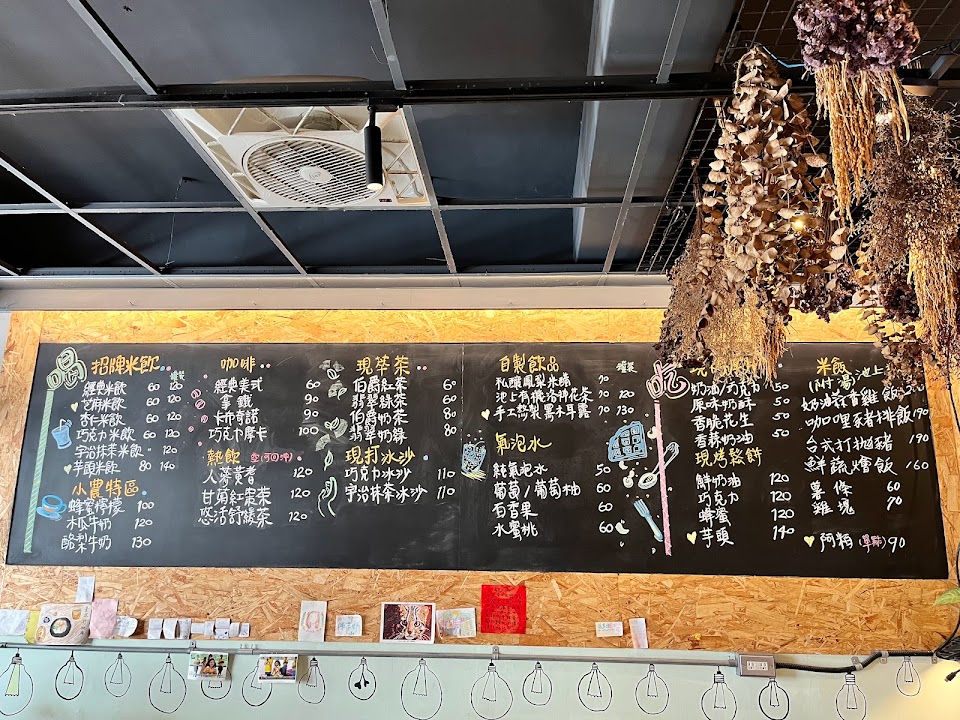 喝
招牌米飲
罐裝
經典米飲 60 120
芝麻米飲 60 120
杏仁米飲 60 120
巧克力米飲 60 120
宇治抹茶米飲 120
芋頭米飲 80 140
小農特區
蜂蜜檸檬 100
木瓜牛奶 120
酪梨牛奶 130
咖啡
經典美式 60
拿鐵 90
卡布奇諾 90
巧克力摩卡 100
熱飲
人蔘養者 120
甘菊紅棗茶 120
悠活舒緩茶 120
現萃茶
伯爵紅茶 60
翡翠綠茶 60
伯爵奶茶 80
翡翠奶綠 80
現打冰沙
巧克力冰沙 110
宇治抹茶冰沙 110
自製飲品
罐裝
私釀鳳梨米醋 70 120
池上有機洛神花茶 70 120
手工熬製黑木耳露 70 130
氣泡水
純氣泡水 50
葡萄/葡萄柚 60
百香果 60
水蜜桃 60
吃
奶油/巧克力 50
原味奶酥 50
香脆花生 50
香蒜奶油 50
現烤鬆餅
鮮奶油 120
巧克力 120
蜂蜜 120
芋頭 140
米飯
(附湯)池上
奶油松香雞飯
咖哩豬排飯 190
台式打拋豬 190
鮮蔬燴飯 160
薯條 60
雞塊 70
阿粨 90